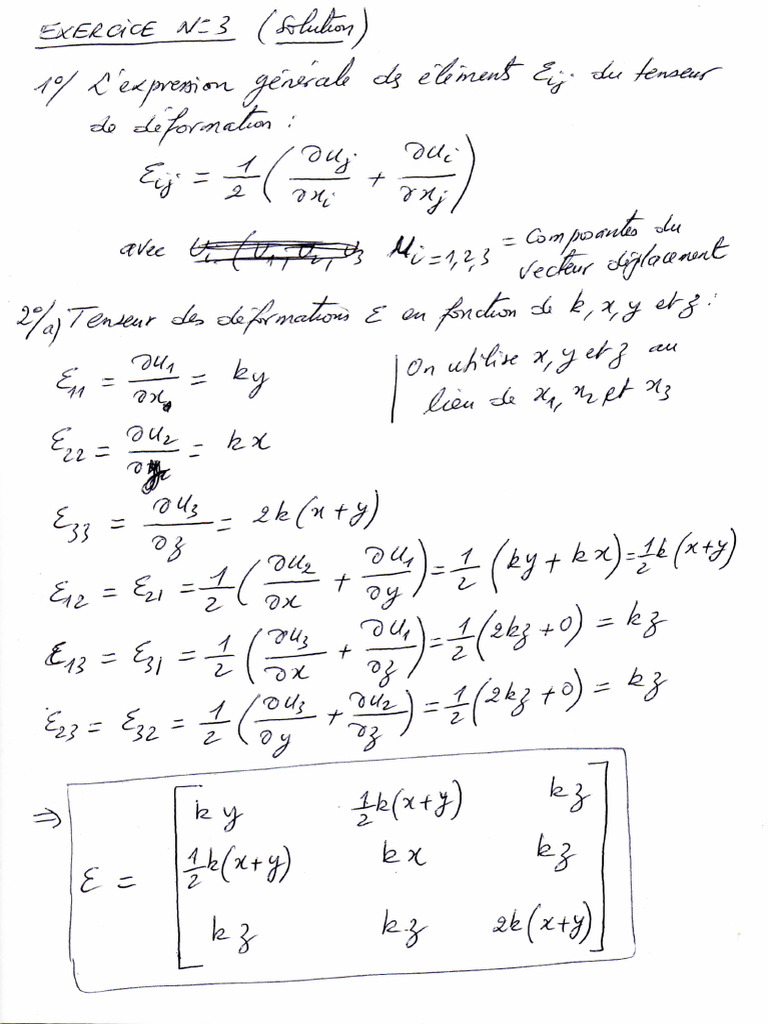 EXERCICE N=3 (Solution)
1°/ L'expression générale des élément εij du tenseur
de déformation :
εij = 1/2 (∂uj/∂xi + ∂ui/∂xj)
avec ui=1,2,3 = Composantes du
vecteur déplacement
2°/a) Tenseur des déformations ε en fonction de k, x, y et z :
ε11 = ∂u1/∂x = ky
On utilise x, y et z au
lieu de x1, x2 et x3
ε22 = ∂u2/∂y = kx
ε33 = ∂u3/∂z = 2k(x+y)
ε12 = ε21 = 1/2 (∂u2/∂x + ∂u1/∂y) = 1/2 (ky + kx) = 1/2 k(x+y)
ε13 = ε31 = 1/2 (∂u3/∂x + ∂u1/∂z) = 1/2 (2kz + 0) = kz
ε23 = ε32 = 1/2 (∂u3/∂y + ∂u2/∂z) = 1/2 (2kz + 0) = kz
⇒ ε = [ ky 1/2 k(x+y) kz
1/2 k(x+y) kx kz
kz kz 2k(x+y) ]